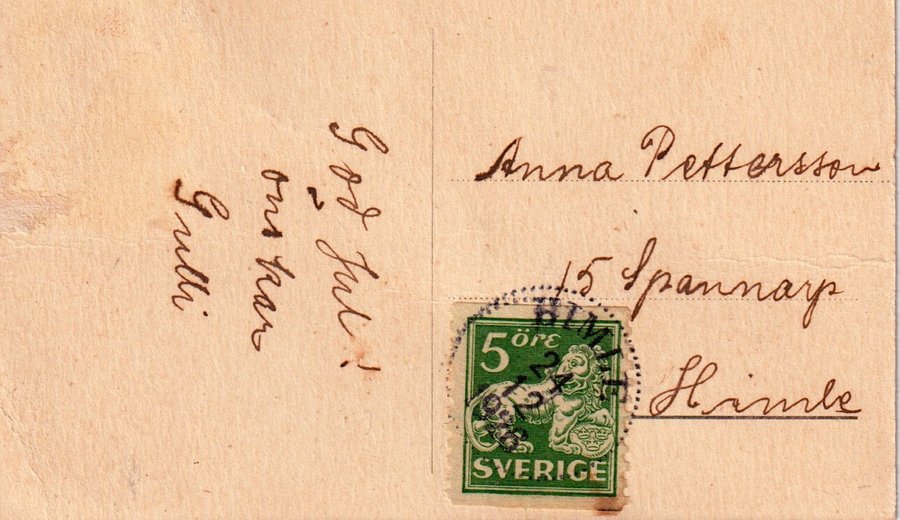 God Jul!
önskar
Gulli
Anna Pettersson
15 Spannarp
Himle
HIMLE
24
12
5 ÖRE
SVERIGE